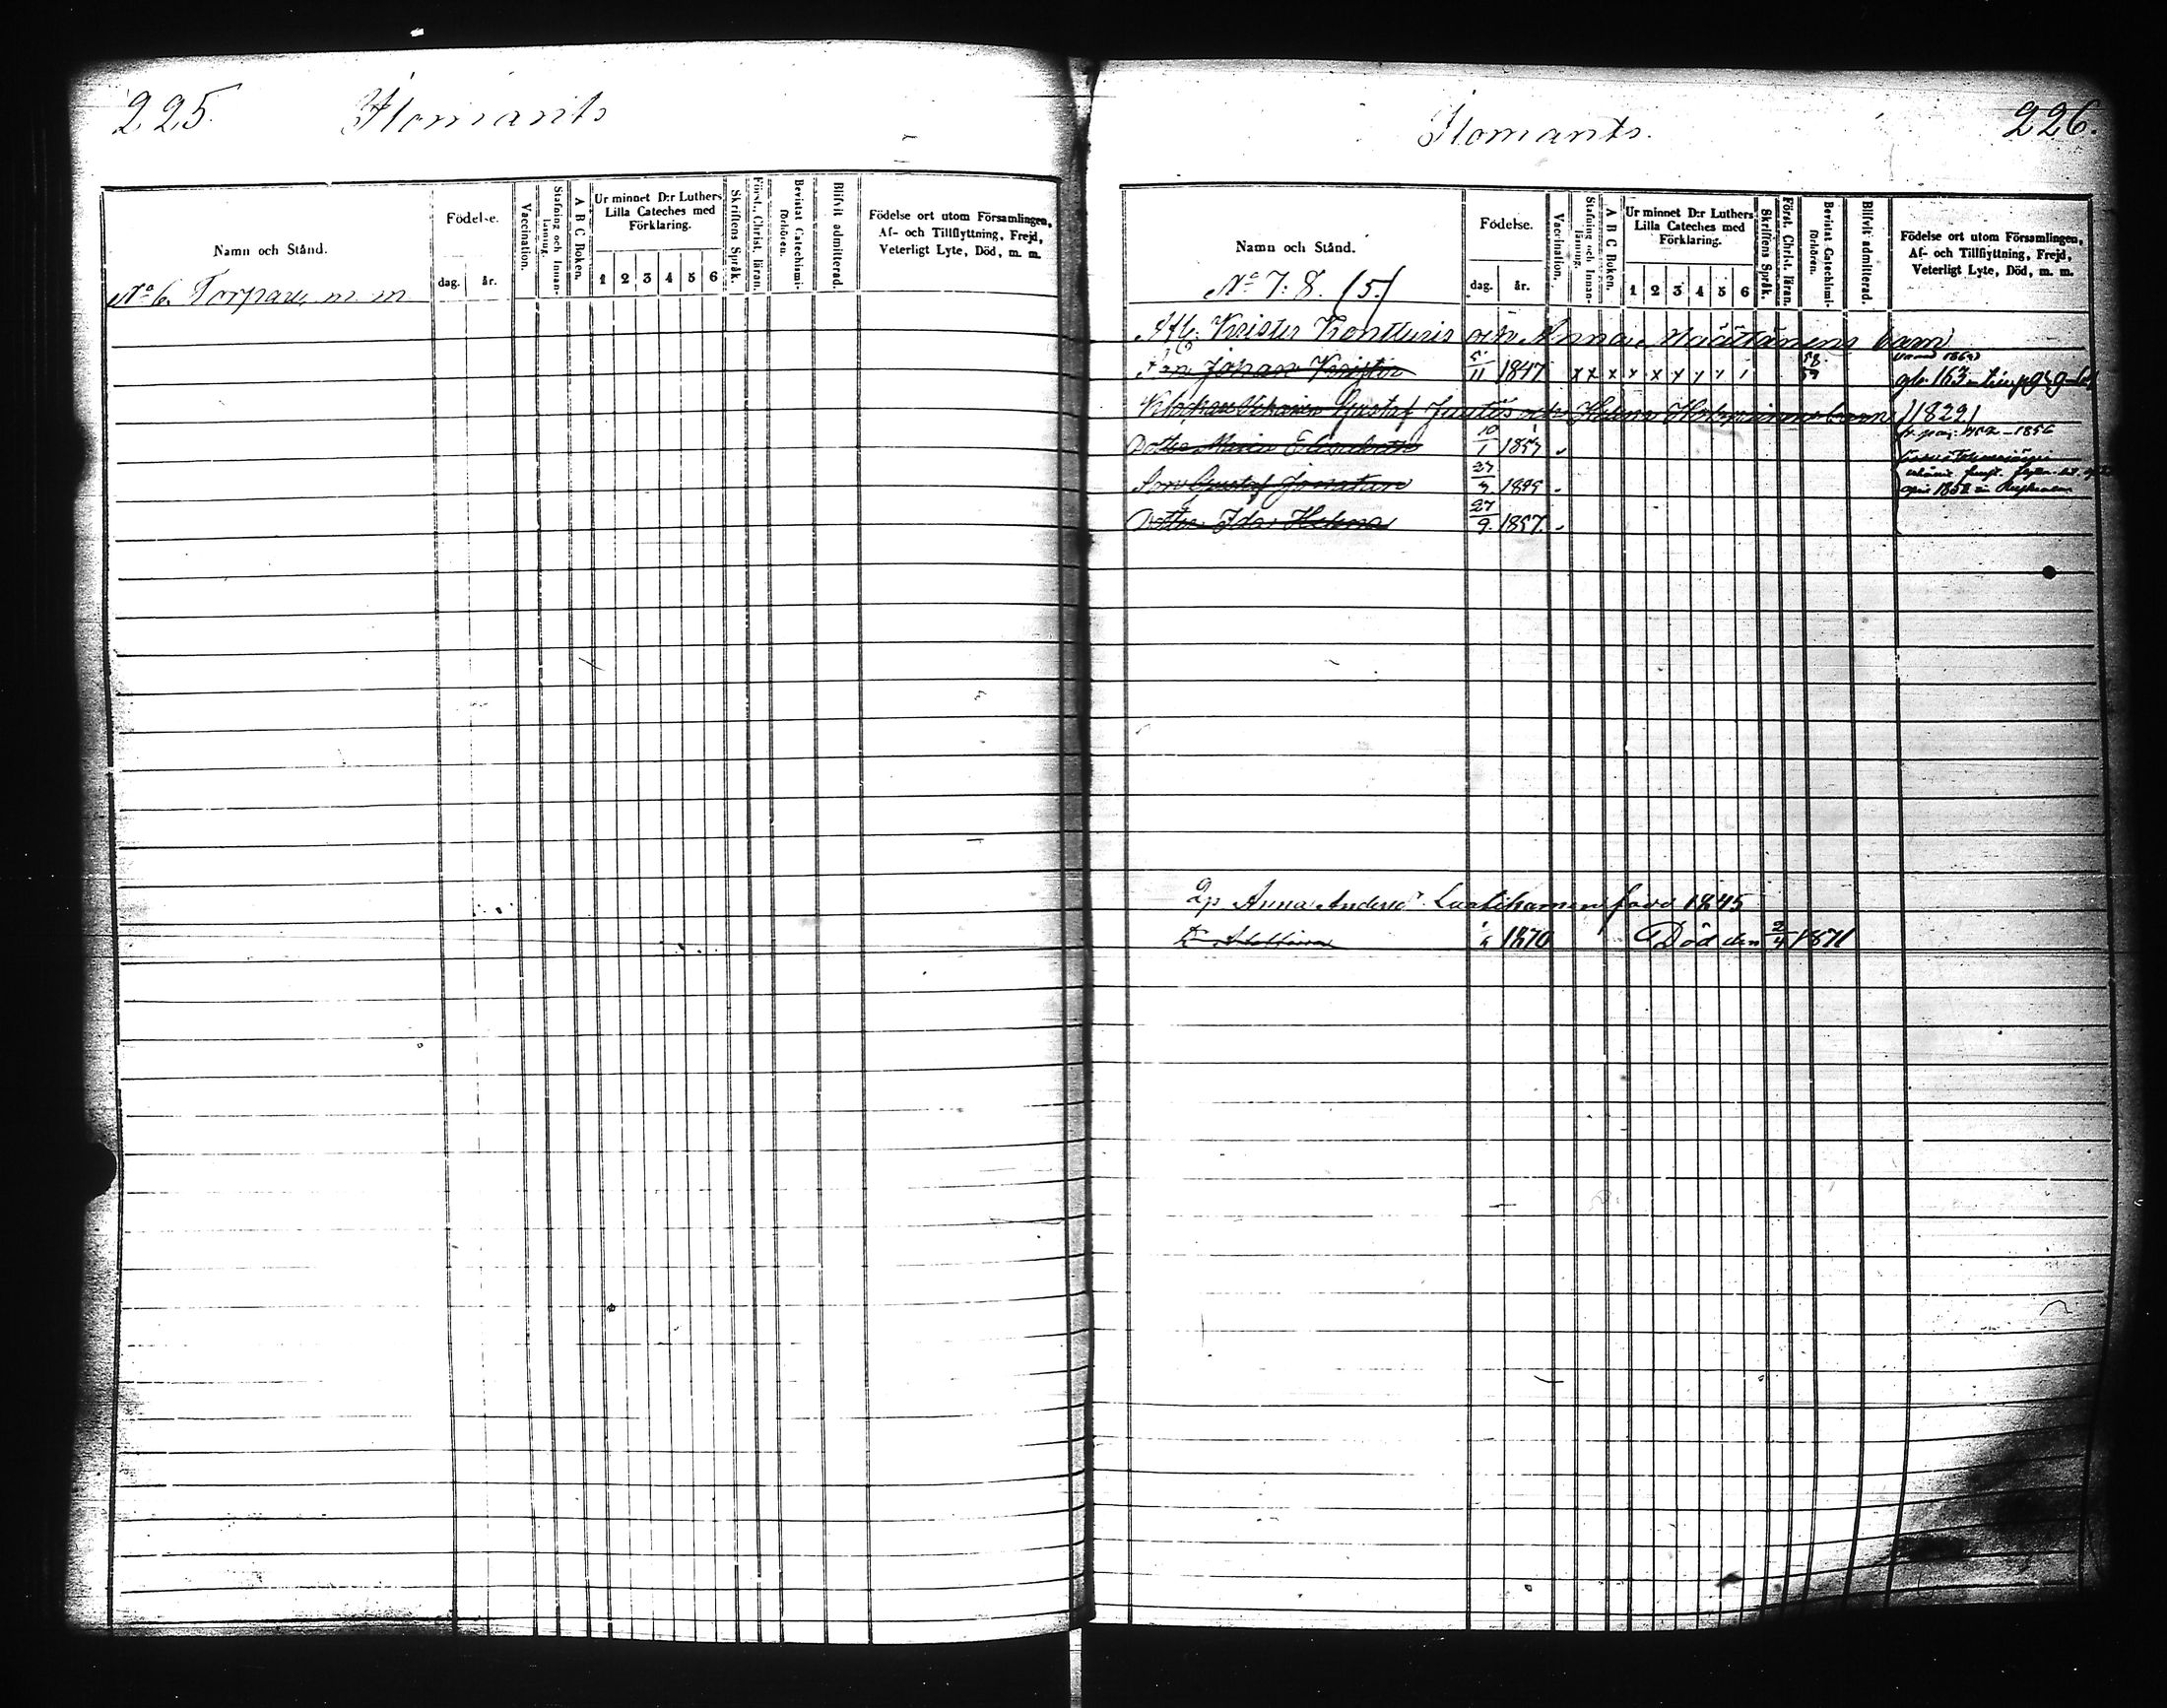 225. Ilomants
Namn och Stånd.
Födelse.
dag. år.
Vaccination.
Stafning och Innan-
läsning.
A B C Boken.
Ur minnet D:r Luthers
Lilla Cateches med
Förklaring.
1 2 3 4 5 6
Skriftens Språk.
Först. Christ. läran.
Bevistat Catechismi-
förhören.
Blifvit admitterad.
Födelse ort utom Församlingen,
Af- och Tillflyttning, Frejd,
Veterligt Lyte, Död, m. m.
No 6. Torpare m m
Ilomants. 226.
Namn och Stånd.
No 7. 8. (5.)
Födelse.
dag. år.
Vaccination.
Stafning och Innan-
läsning.
A B C Boken.
Ur minnet D:r Luthers
Lilla Cateches med
Förklaring.
1 2 3 4 5 6
Skriftens Språk.
Först. Christ. läran.
Bevistat Catechismi-
förhören.
Blifvit admitterad.
Födelse ort utom Församlingen,
Af- och Tillflyttning, Frejd,
Veterligt Lyte, Död, m. m.
Krister Kontturis och Anna Määttänens barn
Johan Krister 5/11 1847 x x x x x x y y 1 1 58 59 163
Gustaf och Helena barn 1829
Dotter Maria Elisabeth 10/1 1854 1856
Son Gustaf Jonatan 27 1858
Dotter Ida Helena 27/9. 1857.
Anna Anders Laatikainen född 1845
1870 Död den 2/4 1871